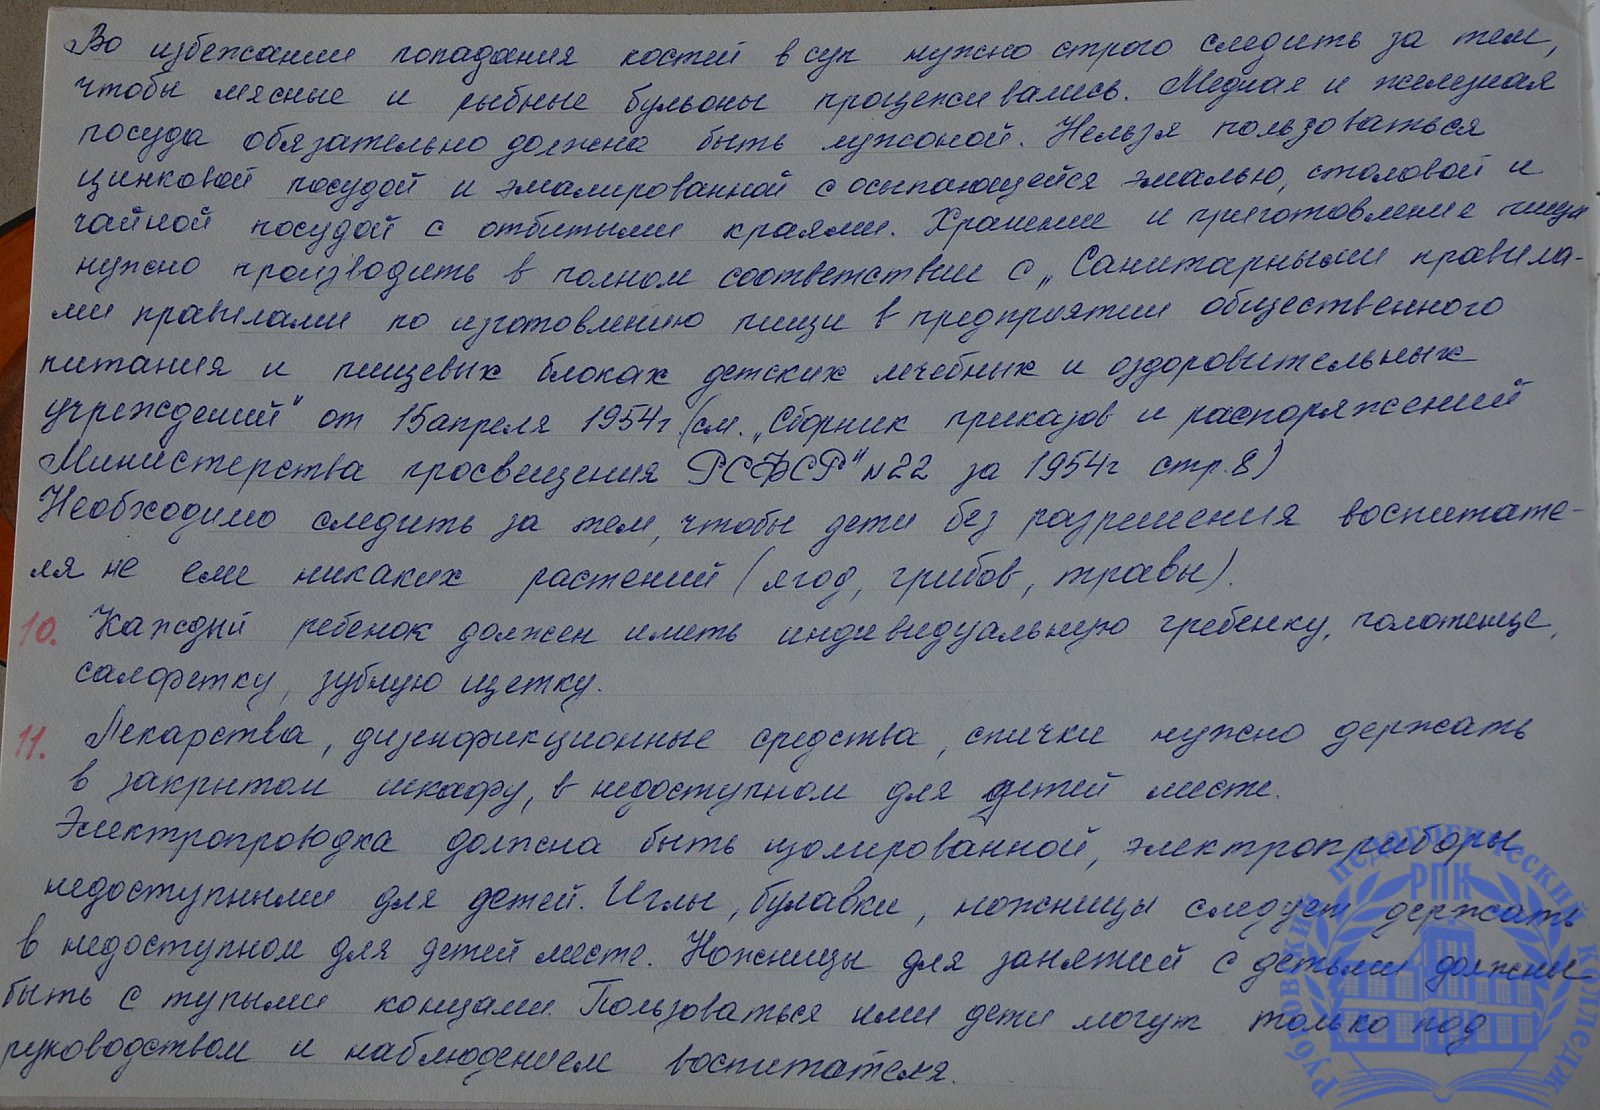 Во избежании попадания костей в суп нужно строго следить за тем,
чтобы мясные и рыбные бульоны процеживались. Медная и железная
посуда обязательно должна быть луженой. Нельзя пользоваться
цинковой посудой и эмалированной с осыпающейся эмалью, столовой и
чайной посудой с отбитыми краями. Хранение и приготовление пищи
нужно производить в полном соответствии с „Санитарными правила-
ми правилами по изготовлению пищи в предприятии общественного
питания и пищевых блоках детских лечебных и оздоровительных
учреждений" от 15 апреля 1954г. (см. „Сборник приказов и распоряжений
Министерства просвещения РСФСР" №22 за 1954г стр. 8)
Необходимо следить за тем, чтобы дети без разрешения воспитате-
ля не ели никаких растений (ягод, грибов, травы).
10. Каждый ребенок должен иметь индивидуальную гребенку, полотенце,
салфетку, зубную щетку.
11. Лекарства, дизенфикционные средства, спички нужно держать
в закрытом шкафу, в недоступном для детей месте.
Электропроводка должна быть изолированной, электроприборы
недоступными для детей. Иглы, булавки, ножницы следует держать
в недоступном для детей месте. Ножницы для занятий с детьми должны
быть с тупыми концами. Пользоваться ими дети могут только под
руководством и наблюдением воспитателя.
РУБЦОВСКИЙ ПЕДАГОГИЧЕСКИЙ КОЛЛЕДЖ
РПК